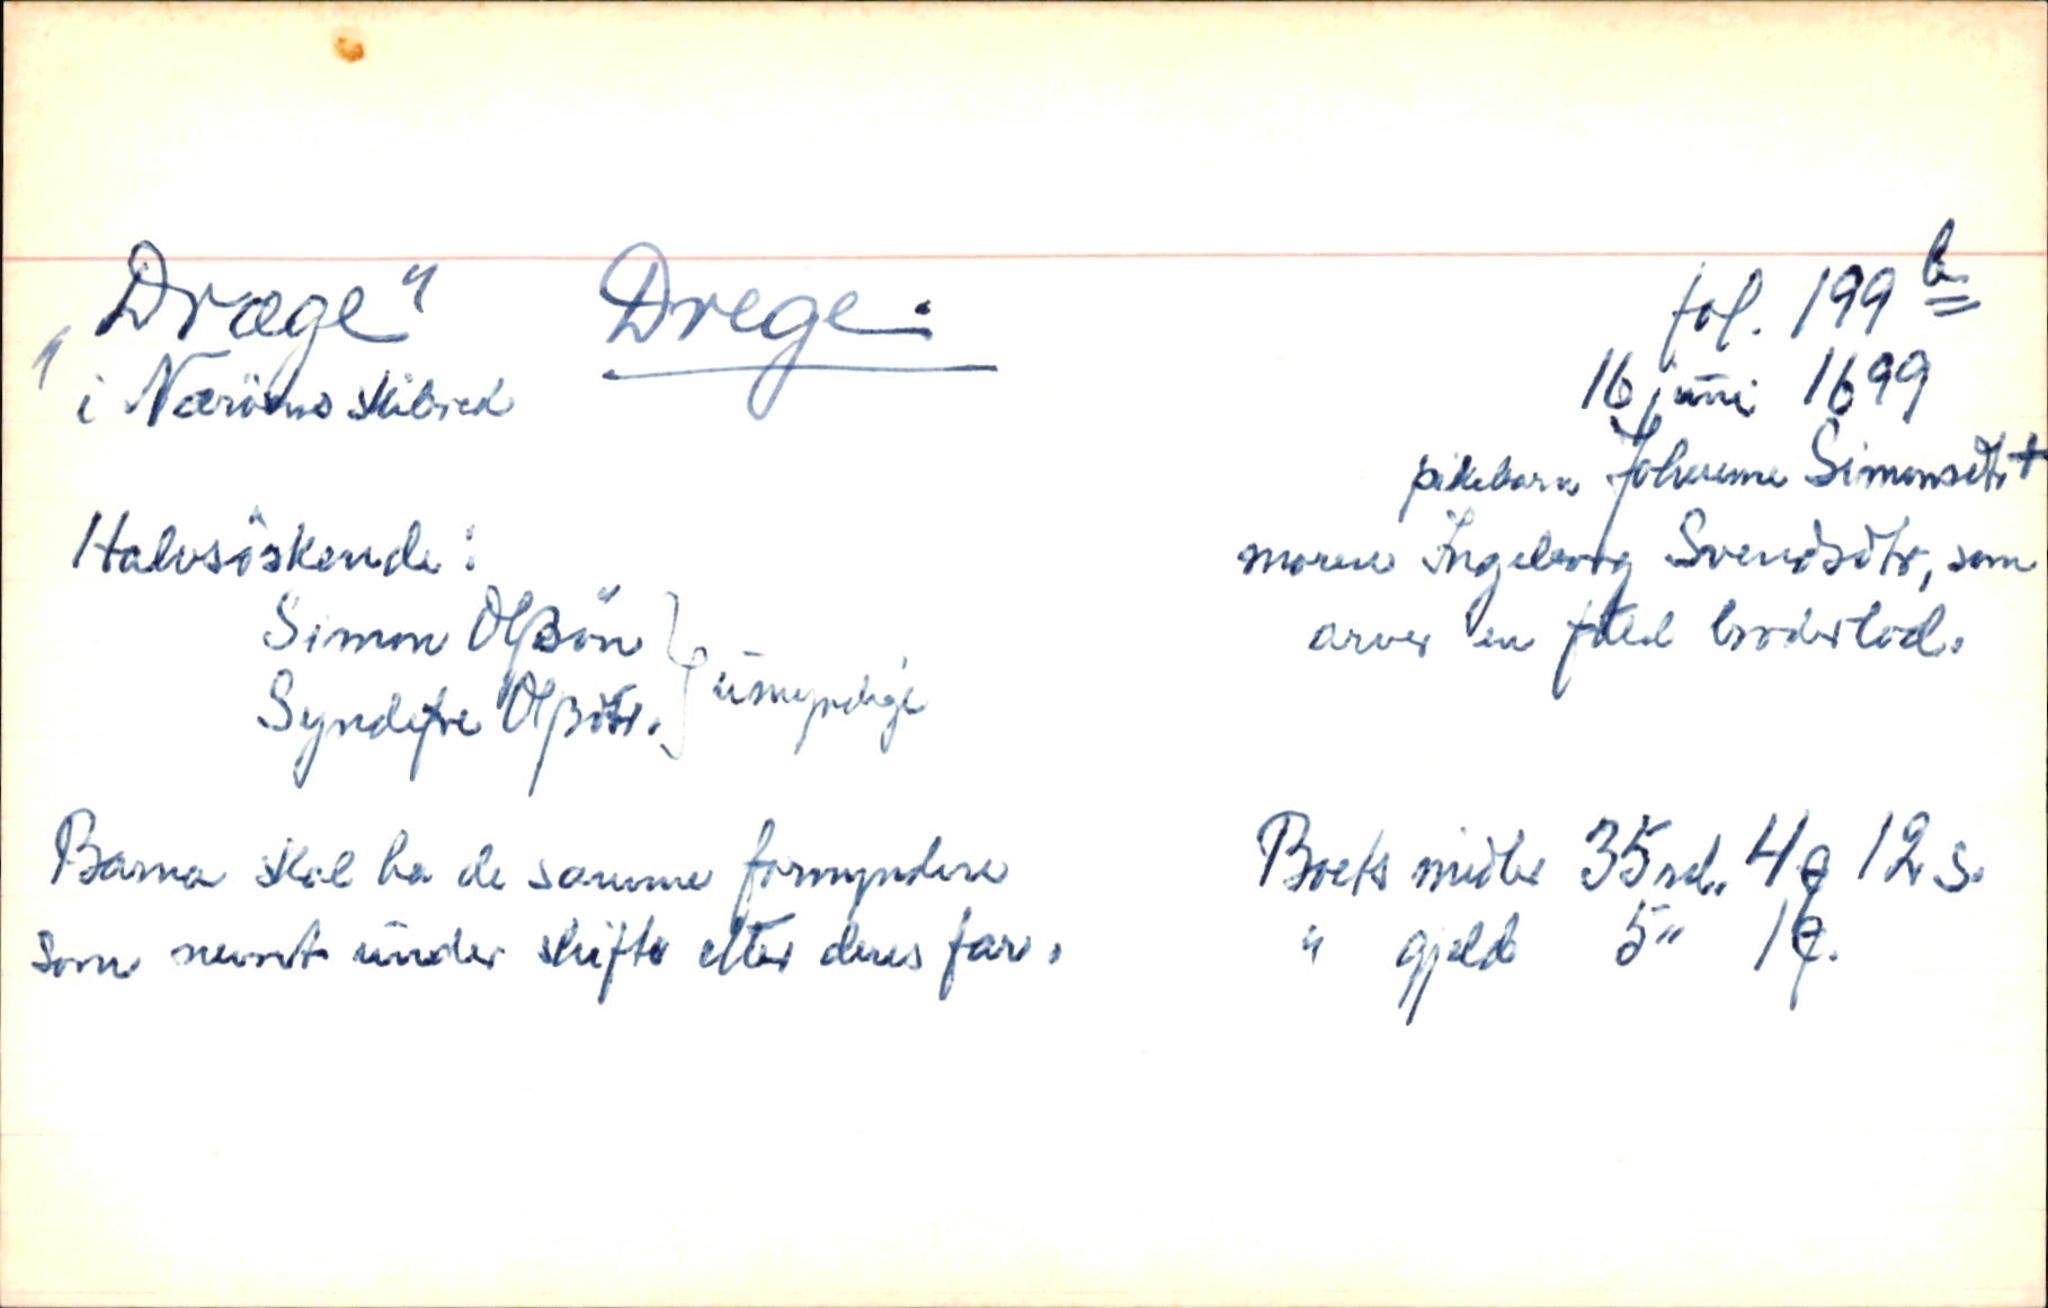 „Dræge" Drege.
i Nærøens skibred
fol. 199 b
16 juni 1699
pikebarn Johanne Simonsdtr +
moren Ingeborg Svendsdtr, som
arver en fuld broderlod.
Halvsöskende:
Simon Olßön
Syndefve Olßdtr.
umyndige
Barna skal ha de samme formyndere
som nevnt under skifte etter deres far.
Boets midler 35 rd. 4 q 12 s.
" gjeld 5 " 1 q.